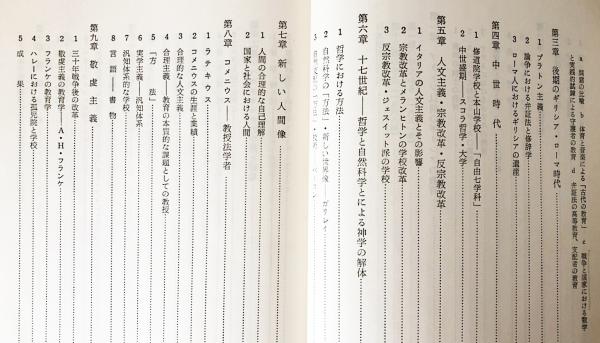 a 洞窟の比喩 b 体育と音楽による「古代の教育」 c 戦争と国家における数学
と実践的試練による守護者の教育 d 弁証法の高等教育、支配者の教育
第三章 後期のギリシア・ローマ時代
1 プラトン主義
2 論争における弁証法と修辞学
3 ローマ人におけるギリシアの遺産
第四章 中世時代
1 修道院学校と本山学校――「自由七学科」
2 中世盛期――スコラ哲学・大学
第五章 人文主義・宗教改革・反宗教改革
1 イタリアの人文主義とその影響
2 宗教改革とメランヒトンの学校改革
3 反宗教改革・ジェスイット派の学校
第六章 十七世紀――哲学と自然科学とによる神学の解体
1 哲学における方法
2 自然科学の「方法」・新しい世界像 ガリレイ
第七章 新しい人間像
1 人間の合理的な自己理解
2 国家と社会における人間
第八章 コメニウス――教授法学者
1 ラテキウス
2 コメニウスの生涯と業績
3 合理的な人文主義
4 合理主義――教育の本質的な課題としての教授
5 「方法」
6 実学主義――汎知体系
7 汎知体系的な学校
8 言語――書物
第九章 敬虔主義
1 三十年戦争後の改革
2 敬虔主義の教育学――A・H・フランケ
3 フランケの教育学
4 ハレーにおける孤児院と学校
5 成果